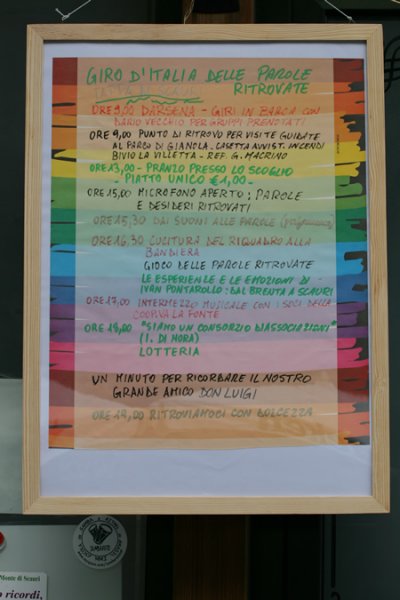 GIRO D'ITALIA DELLE PAROLE
RITROVATE
TAPPA DI SCAURI
ORE 9,00 DARSENA - GIRI IN BARCA CON
DARIO VECCHIO PER GRUPPI PRENOTATI
ORE 9,00 PUNTO DI RITROVO PER VISITE GUIDATE
AL PARCO DI GIANOLA. CASETTA AVVIST. INCENDI
BIVIO LA VILLETTA - REF. G. MACRINO
ORE 13,00 - PRANZO PRESSO LO SCOGLIO
- PIATTO UNICO €1,00 -
ORE 15,00 MICROFONO APERTO; PAROLE
E DESIDERI RITROVATI
ORE 15,30 DAI SUONI ALLE PAROLE
ORE 16,30 CUCITURA DEL RIQUADRO ALLA
BANDIERA
GIOCO DELLE PAROLE RITROVATE
LE ESPERIENZE E LE EMOZIONI DI -
IVAN PONTAROLLO: DAL BRENTA A SCAURI
ORE 17,00 INTERMEZZO MUSICALE CON I SOCI DELLA
COOP.VA LA FONTE
ORE 18,00 "SIAMO UN CONSORZIO D'ASSOCIAZIONI"
(I. DI MORA)
LOTTERIA
UN MINUTO PER RICORDARE IL NOSTRO
GRANDE AMICO DON LUIGI
ORE 19,00 RITROVIAMOCI CON DOLCEZZA
Monte di Scauri
ricordi,